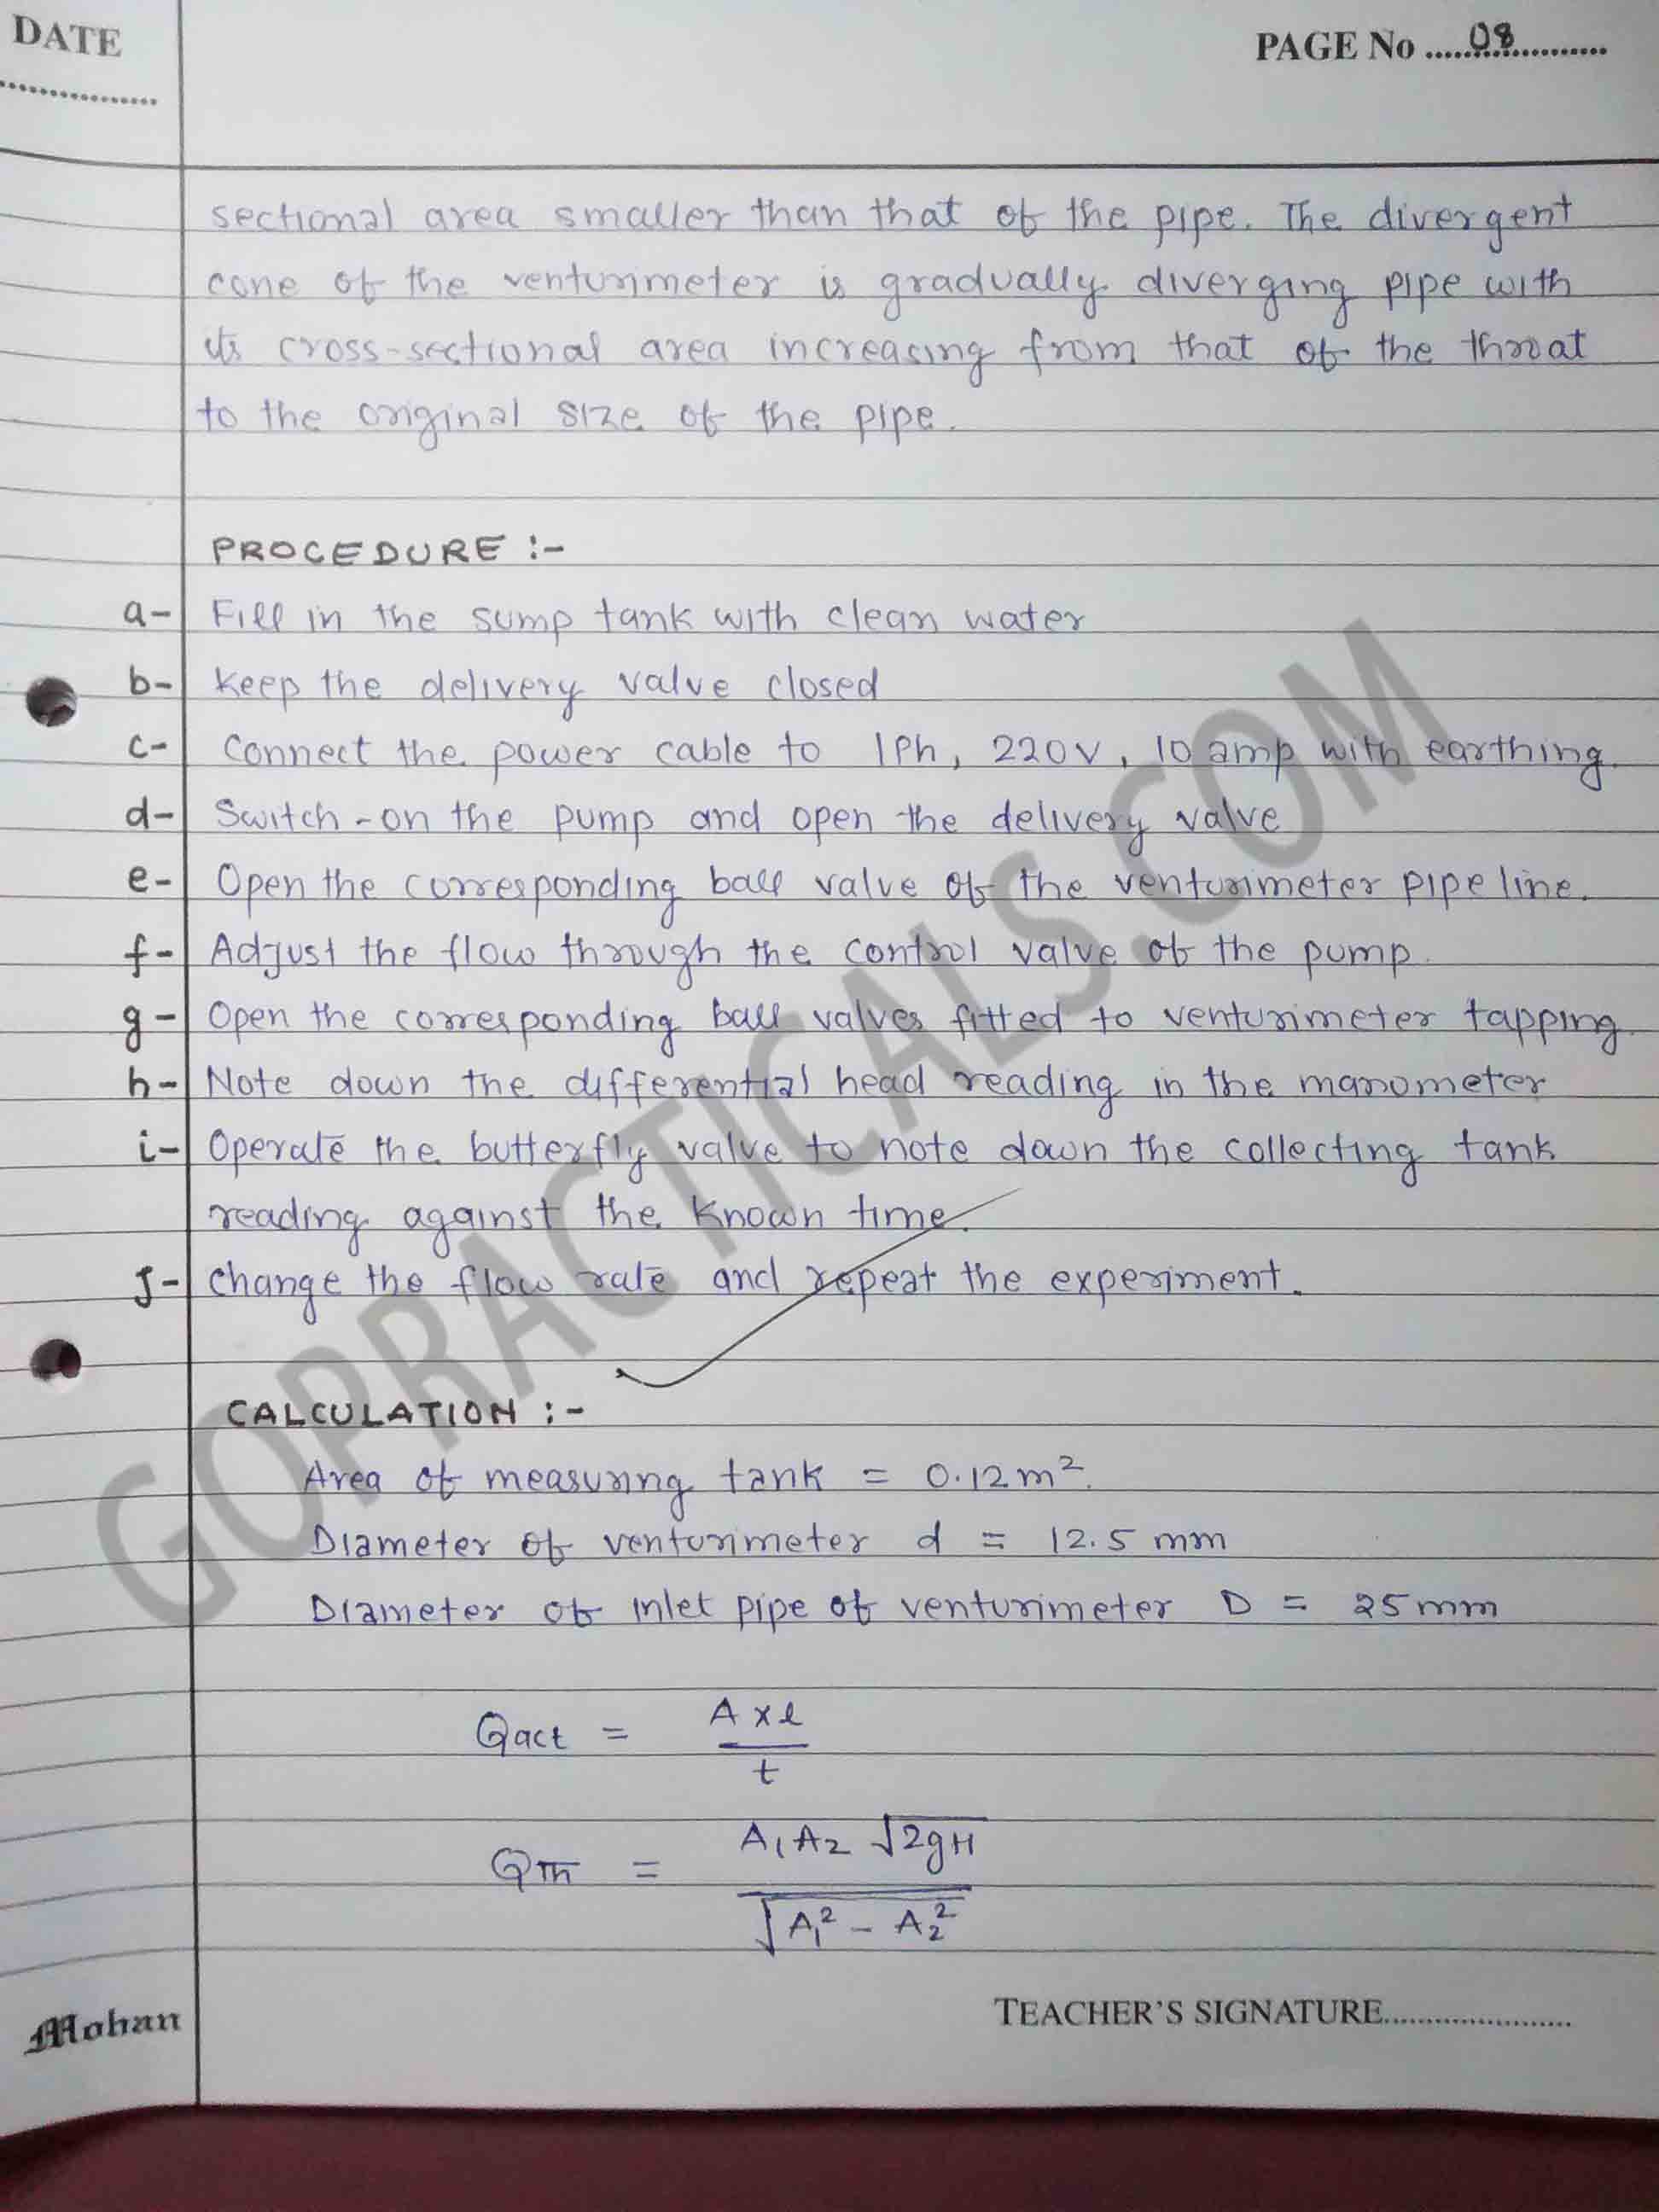 DATE
PAGE No ..... 08 ............
................
sectional area smaller than that of the pipe. The divergent
cone of the venturimeter is gradually diverging pipe with
its cross-sectional area increasing from that of the throat
to the original size of the pipe.
PROCEDURE :-
a- Fill in the sump tank with clean water
b- Keep the delivery valve closed
c- Connect the power cable to 1Ph, 220V, 10 amp with earthing.
d- Switch-on the pump and open the delivery valve
e- Open the corresponding ball valve of the venturimeter pipe line.
f- Adjust the flow through the control valve of the pump.
g- Open the corresponding ball valves fitted to venturimeter tapping.
h- Note down the differential head reading in the manometer
i- Operate the butterfly valve to note down the collecting tank
reading against the known time.
J- Change the flow rate and repeat the experiment.
CALCULATION :-
Area of measuring tank = 0.12 m².
Diameter of venturimeter d = 12.5 mm
Diameter of inlet pipe of venturimeter D = 25 mm
Qact = A x l / t
QTh = A1 A2 √2gH / √A1² - A2²
Mohan
TEACHER'S SIGNATURE......................
GOPRACTICALS.COM